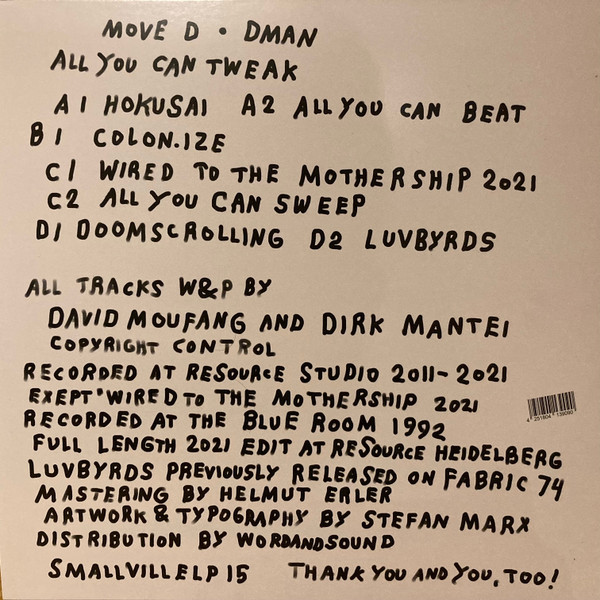 MOVE D • DMAN
ALL YOU CAN TWEAK
A1 HOKUSAI A2 ALL YOU CAN BEAT
B1 COLON.IZE
C1 WIRED TO THE MOTHERSHIP 2021
C2 ALL YOU CAN SWEEP
D1 DOOMSCROLLING D2 LUVBYRDS
ALL TRACKS W&P BY
DAVID MOUFANG AND DIRK MANTEI
COPYRIGHT CONTROL
RECORDED AT RESOURCE STUDIO 2011-2021
EXEPT "WIRED TO THE MOTHERSHIP 2021
RECORDED AT THE BLUE ROOM 1992
FULL LENGTH 2021 EDIT AT RESOURCE HEIDELBERG
LUVBYRDS PREVIOUSLY RELEASED ON FABRIC 74
MASTERING BY HELMUT ERLER
ARTWORK & TYPOGRAPHY BY STEFAN MARX
DISTRIBUTION BY WORDANDSOUND
SMALLVILLELP15 THANK YOU AND YOU, TOO!
4 251804 139090